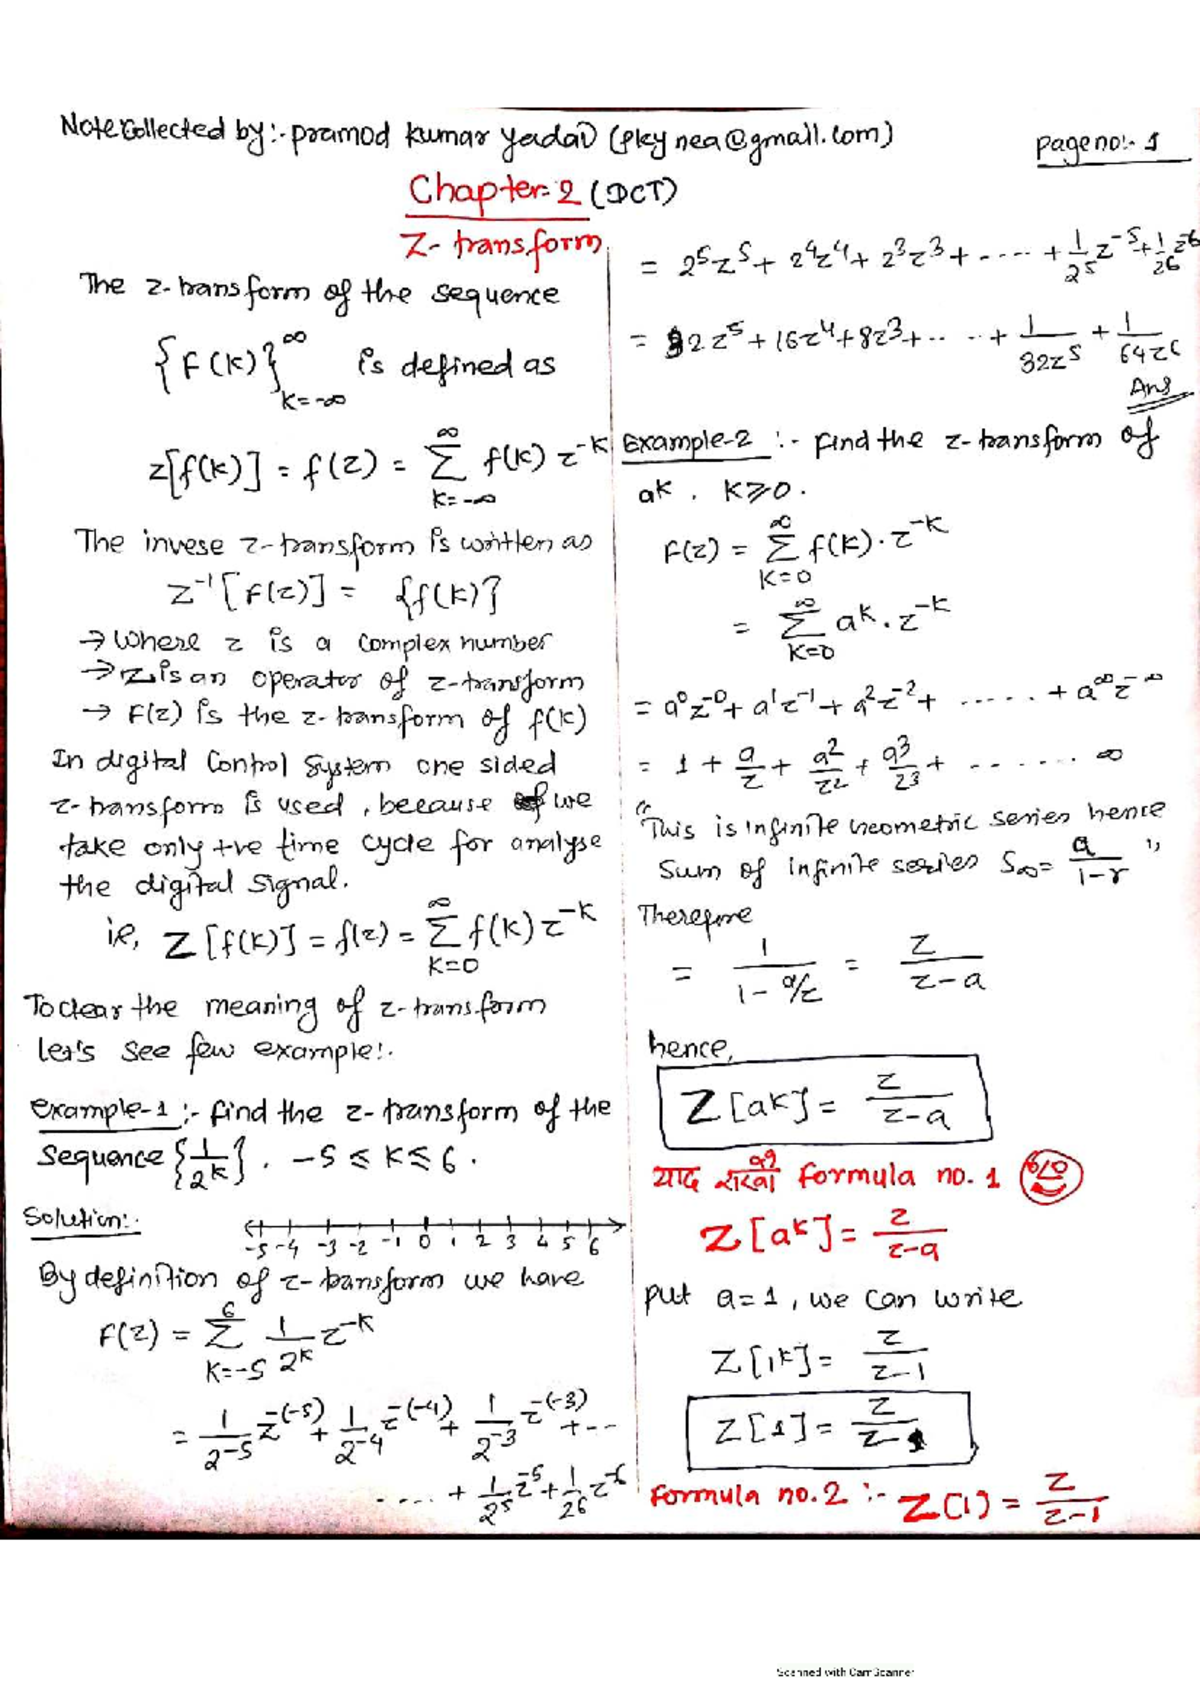 Note collected by:- pramod kumar yadav (pky nea@gmail.com)
page no:- 1
Chapter-2 (DCT)
Z-transform
The z-transform of the sequence
{F(k)}^∞_{k=-∞} is defined as
z[f(k)] = f(z) = ∑_{k=-∞}^{∞} f(k) z^{-k}
The invese z-transform is written as
z^{-1}[F(z)] = {f(k)}
→ where z is a complex number
→ z is an operator of z-transform
→ F(z) is the z-transform of f(k)
In digital control system one sided
z-transform is used, because we
take only +ve time cycle for analyse
the digital signal.
ie, Z[f(k)] = f(z) = ∑_{k=0}^{∞} f(k) z^{-k}
To clear the meaning of z-transform
let's see few example:-
Example-1 :- find the z-transform of the
sequence {1/2^k}, -5 ≤ k ≤ 6.
Solution:-
-5 -4 -3 -2 -1 0 1 2 3 4 5 6
By definition of z-transform we have
F(z) = ∑_{k=-5}^{6} 1/2^k z^{-k}
= 1/2^{-5} z^{-(-5)} + 1/2^{-4} z^{-(-4)} + 1/2^{-3} z^{-(-3)} + ...
.... + 1/2^5 z^{-5} + 1/2^6 z^{-6}
= 2^5z^5 + 2^4z^4 + 2^3z^3 + ..... + 1/2^5 z^{-5} + 1/2^6 z^{-6}
= 32z^5 + 16z^4 + 8z^3 + ..... + 1/32z^5 + 1/64z^6
Ans
Example-2 :- Find the z-transform of
a^k, k≥0.
F(z) = ∑_{k=0}^{∞} f(k)·z^{-k}
= ∑_{k=0}^{∞} a^k·z^{-k}
= a^0z^{-0} + a^1z^{-1} + a^2z^{-2} + ...... + a^∞z^{-∞}
= 1 + a/z + a^2/z^2 + a^3/z^3 + ....... ∞
"This is infinite Geometric series hence
sum of infinite series S∞ = a/1-r"
Therefore
= 1/1-a/z = z/z-a
hence,
Z[a^k] = z/z-a
याद राख्ने formula no. 1
Z[a^k] = z/z-a
put a=1, we can write
Z[1^k] = z/z-1
Z[1] = z/z-1
Formula no.2 :- Z(1) = z/z-1
Scanned with CamScanner